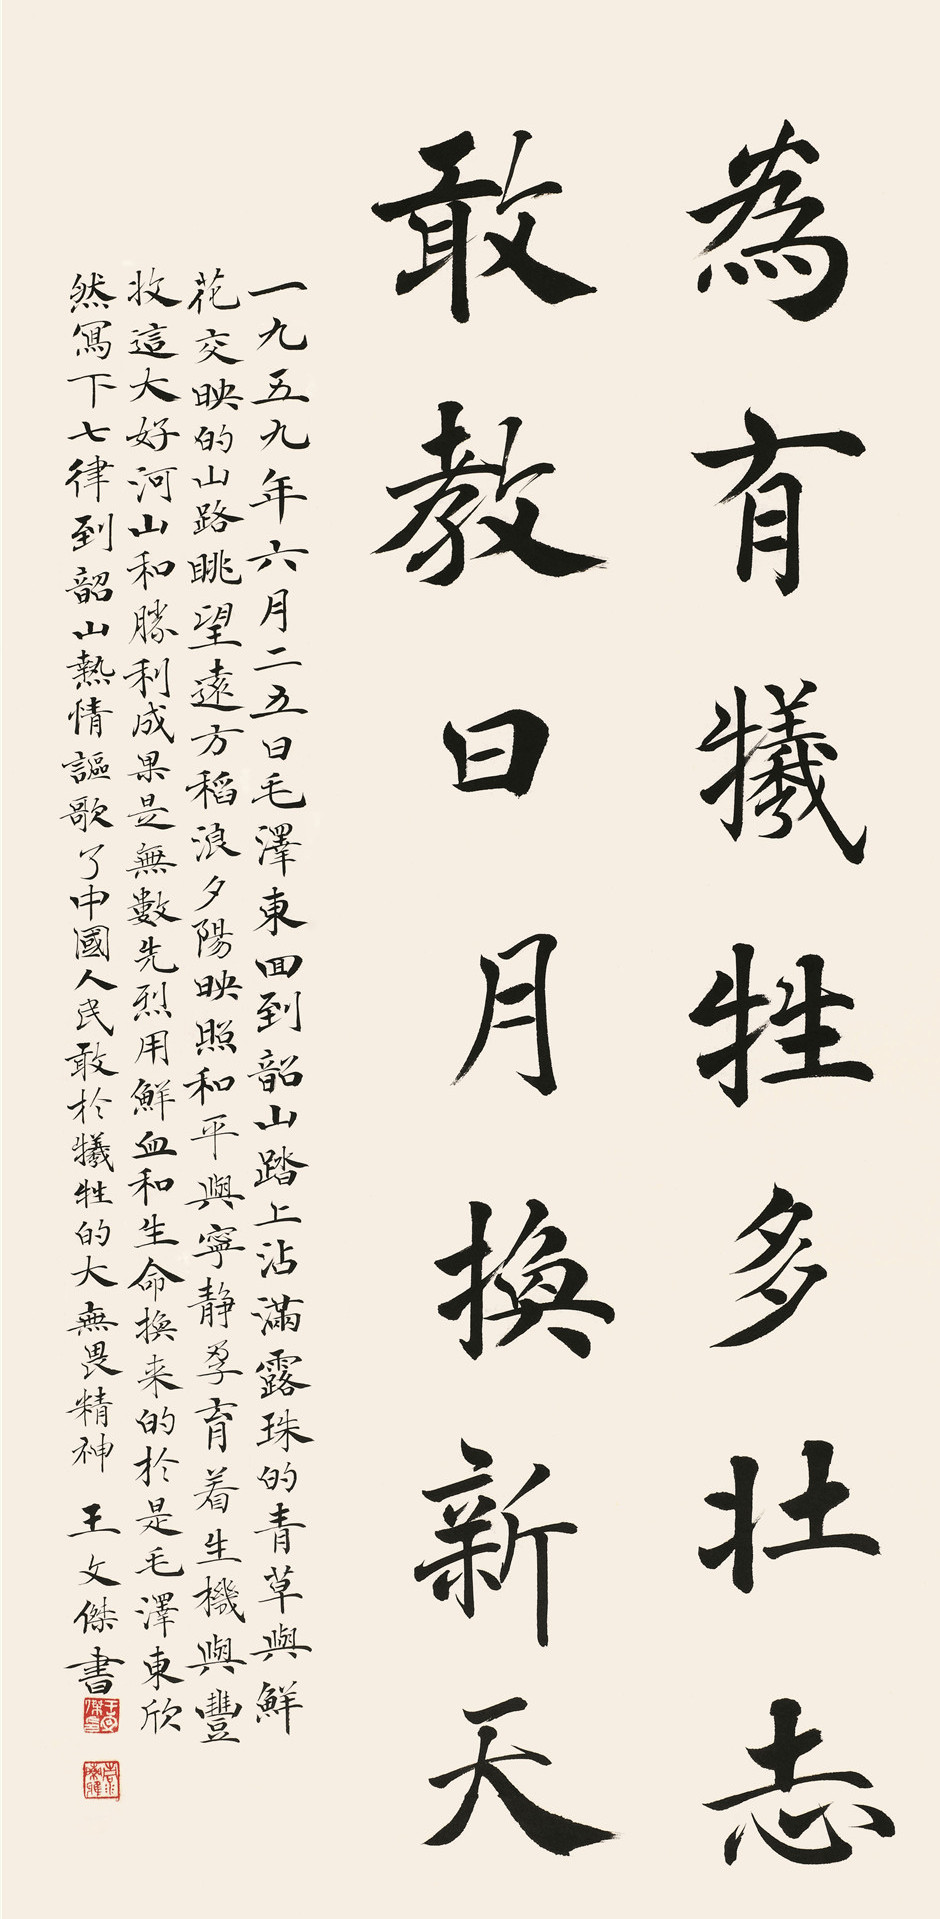 為有犧牲多壯志
敢教日月換新天
一九五九年六月二五日毛澤東回到韶山踏上沾滿露珠的青草與鮮
花交映的山路眺望遠方稻浪夕陽映照和平與寧静孕育着生機與豐
收這大好河山和勝利成果是無數先烈用鮮血和生命換来的於是毛澤東欣
然寫下七律到韶山熱情謳歌了中國人民敢於犧牲的大無畏精神 王文傑書